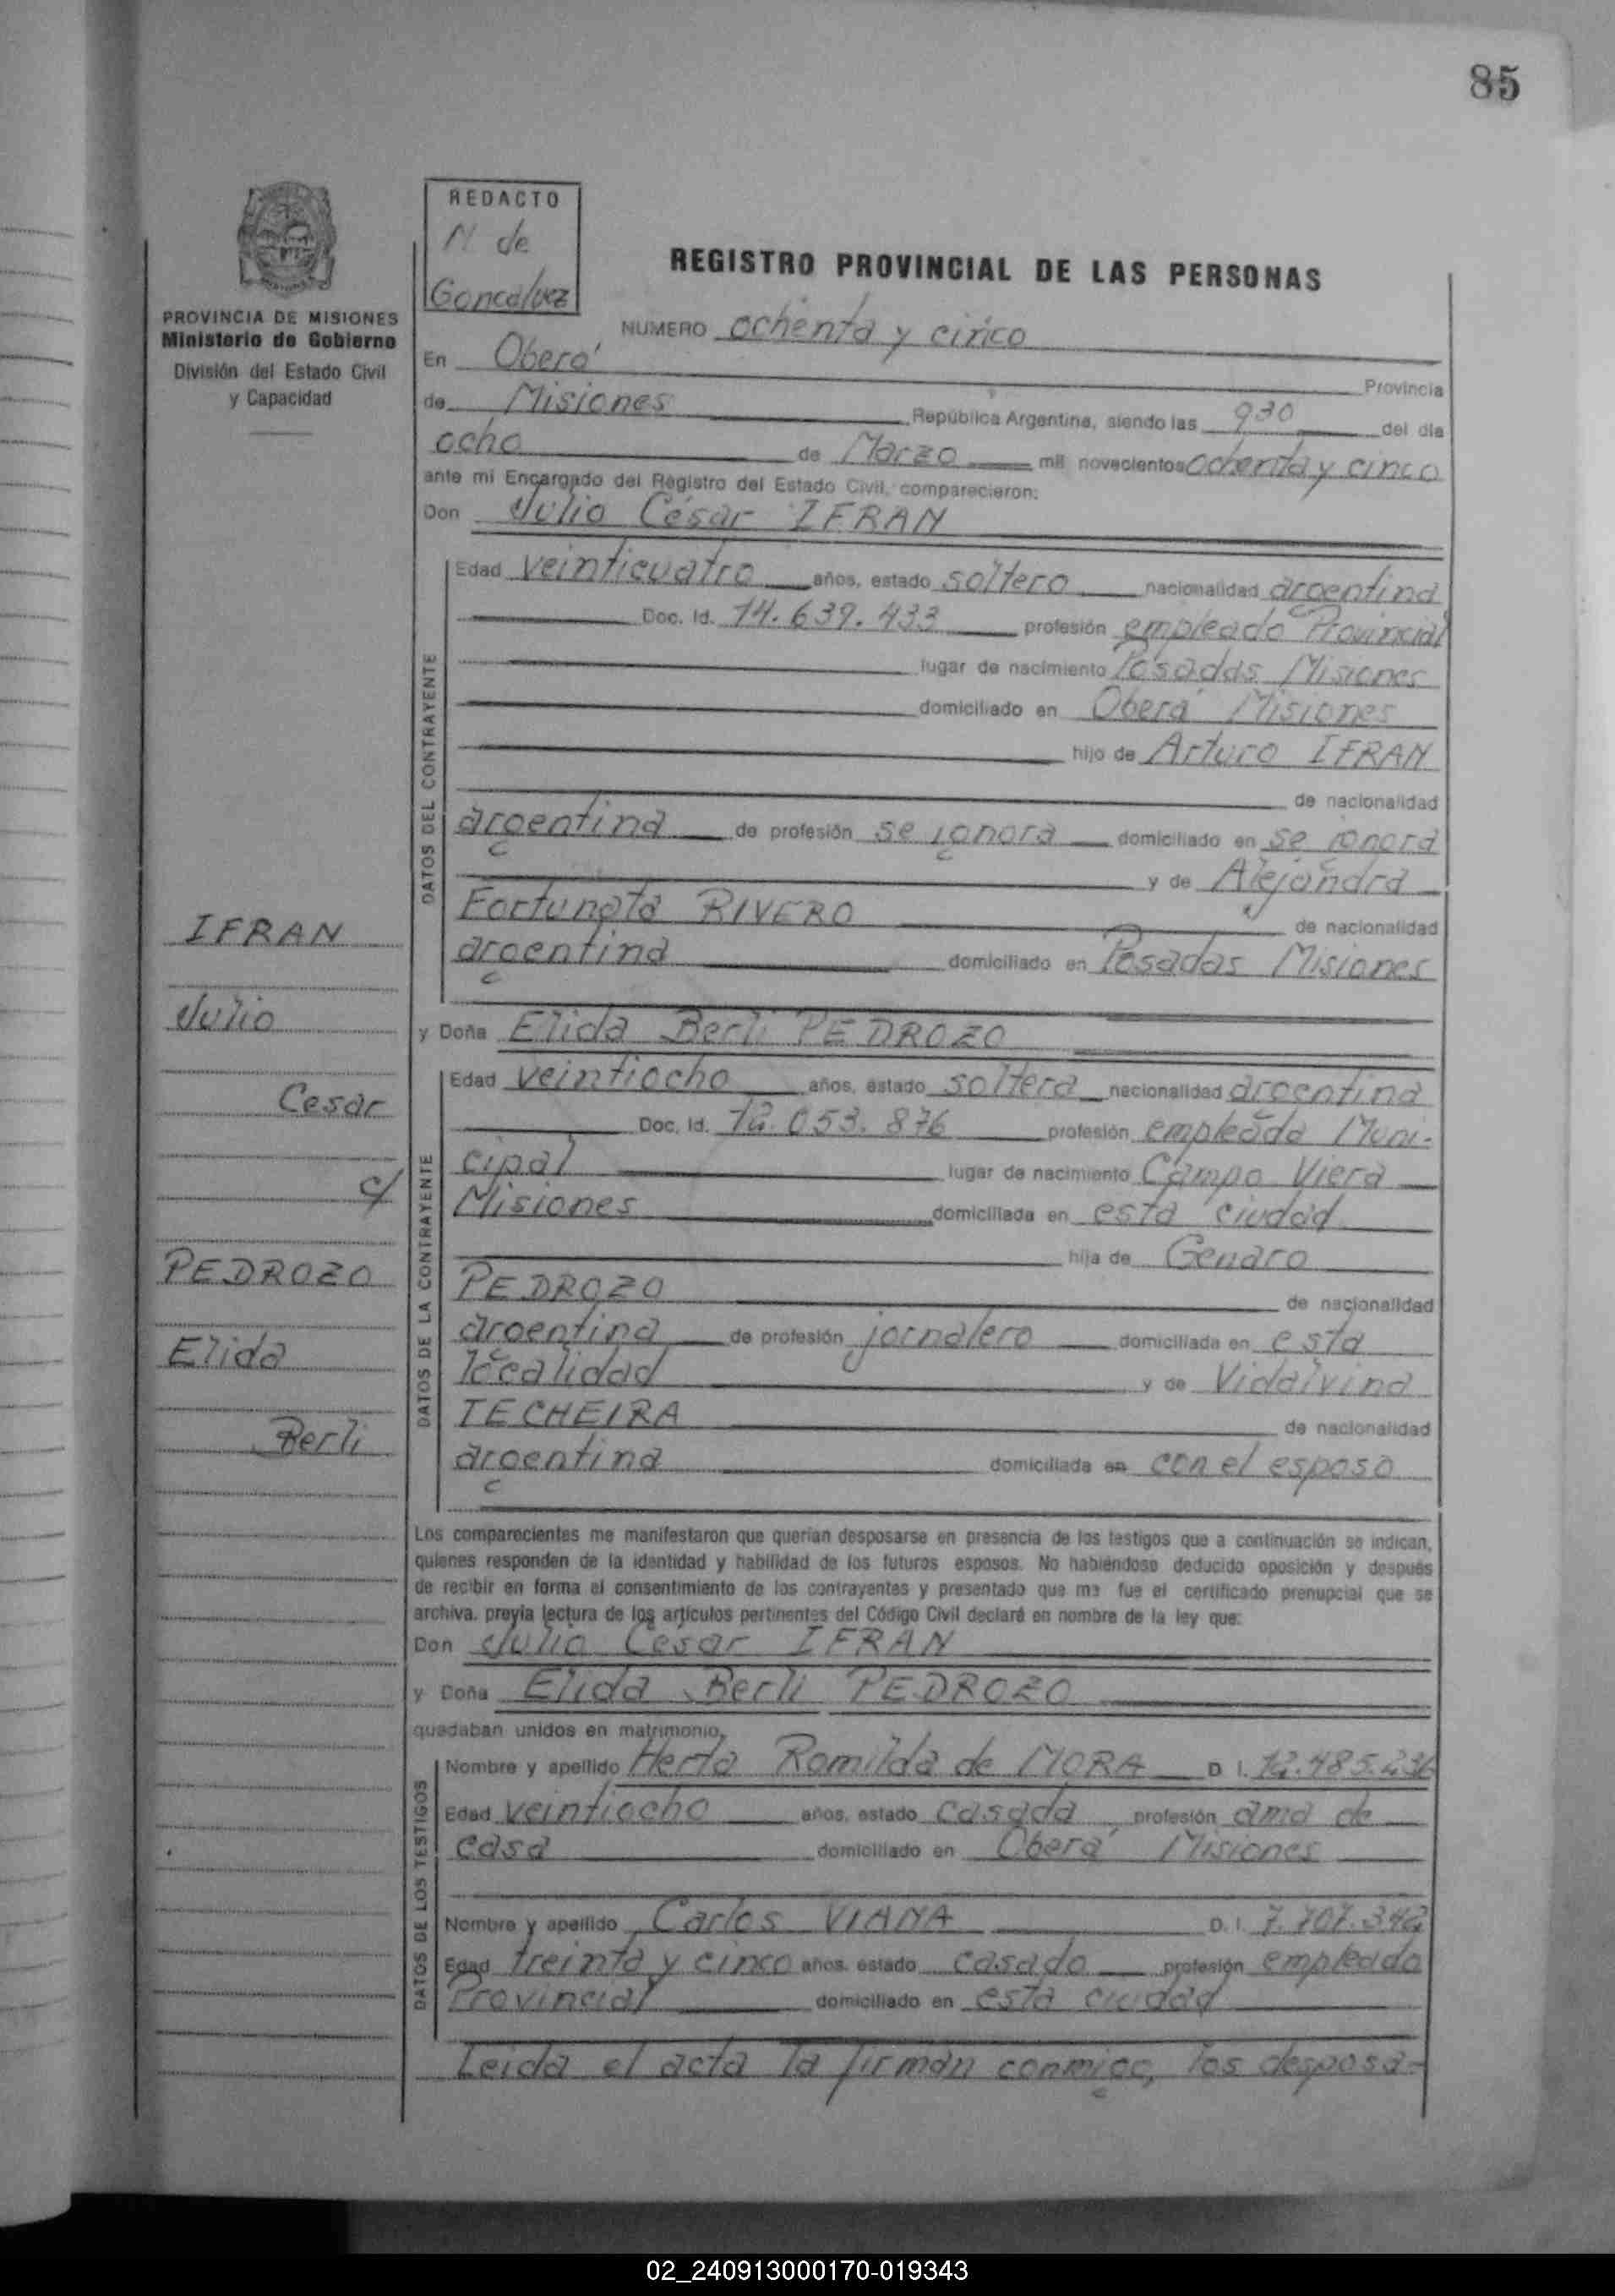 85
REDACTO
N de
Goncalvez
REGISTRO PROVINCIAL DE LAS PERSONAS
PROVINCIA DE MISIONES
Ministerio de Gobierno
División del Estado Civil
y Capacidad
NUMERO ochenta y cinco
En Oberá Provincia
de Misiones República Argentina, siendo las 930 del dia
ocho de Marzo mil novecientos ochenta y cinco
ante mi Encargado del Registro del Estado Civil, comparecieron:
Don Julio César IFRAN
DATOS DEL CONTRAYENTE
Edad veinticuatro años, estado soltero nacionalidad argentina
Doc. Id. 14.639.433 profesión empleado Provincial
lugar de nacimiento Posadas Misiones
domiciliado en Oberá Misiones
hijo de Arturo IFRAN
de nacionalidad
argentina de profesión se ignora domiciliado en se ignora
y de Alejandra
Fortunata RIVERO de nacionalidad
argentina domiciliado en Posadas Misiones
IFRAN
Julio
Cesar
c/
PEDROZO
Elida
Berli
y Doña Elida Berli PEDROZO
DATOS DE LA CONTRAYENTE
Edad veintiocho años, estado soltera nacionalidad argentina
Doc. Id. 12.053.876 profesión empleada Muni-
cipal lugar de nacimiento Campo Viera
Misiones domiciliada en esta ciudad
hija de Genaro
PEDROZO de nacionalidad
argentina de profesión jornalero domiciliada en esta
localidad y de Vidalvina
TECHEIRA de nacionalidad
argentina domiciliada en con el esposo
Los comparecientes me manifestaron que querían desposarse en presencia de los testigos que a continuación se indican,
quienes responden de la identidad y habilidad de los futuros esposos. No habiéndose deducido oposición y después
de recibir en forma el consentimiento de los contrayentes y presentado que me fue el certificado prenupcial que se
archiva, previa lectura de los artículos pertinentes del Código Civil declaré en nombre de la ley que:
Don Julio Cesar IFRAN
y Doña Elida Berli PEDROZO
quedaban unidos en matrimonio,
DATOS DE LOS TESTIGOS
Nombre y apellido Herta Romilda de MORA D I. 12.485.236
Edad veintiocho años, estado casada profesión ama de
casa domiciliado en Oberá Misiones
Nombre y apellido Carlos VIANA D. I. 7.707.342
Edad treinta y cinco años, estado casado profesión empleado
Provincial domiciliado en esta ciudad
Leida el acta la firman conmigo, los desposa-
02_240913000170-019343